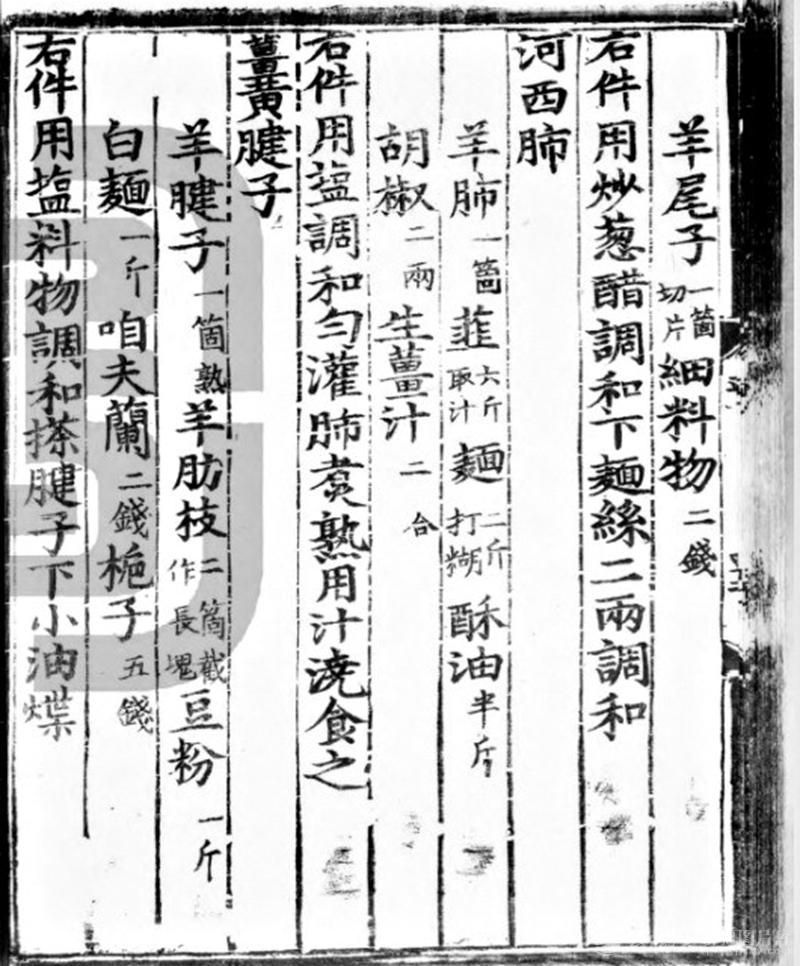 羊尾子一箇切片細料物二錢
右件用炒葱醋調和下麵絲二兩調和
河西肺
羊肺一箇韮六斤取汁麵二斤打糊酥油半斤
胡椒二兩生薑汁二合
右件用塩調和勻灌肺煮熟用汁澆食之
薑黄腱子
羊腱子一箇熟羊肋枝二箇截作長塊豆粉一斤
白麵一斤咱夫蘭二錢梔子五錢
右件用塩料物調和搽腱子下小油煠